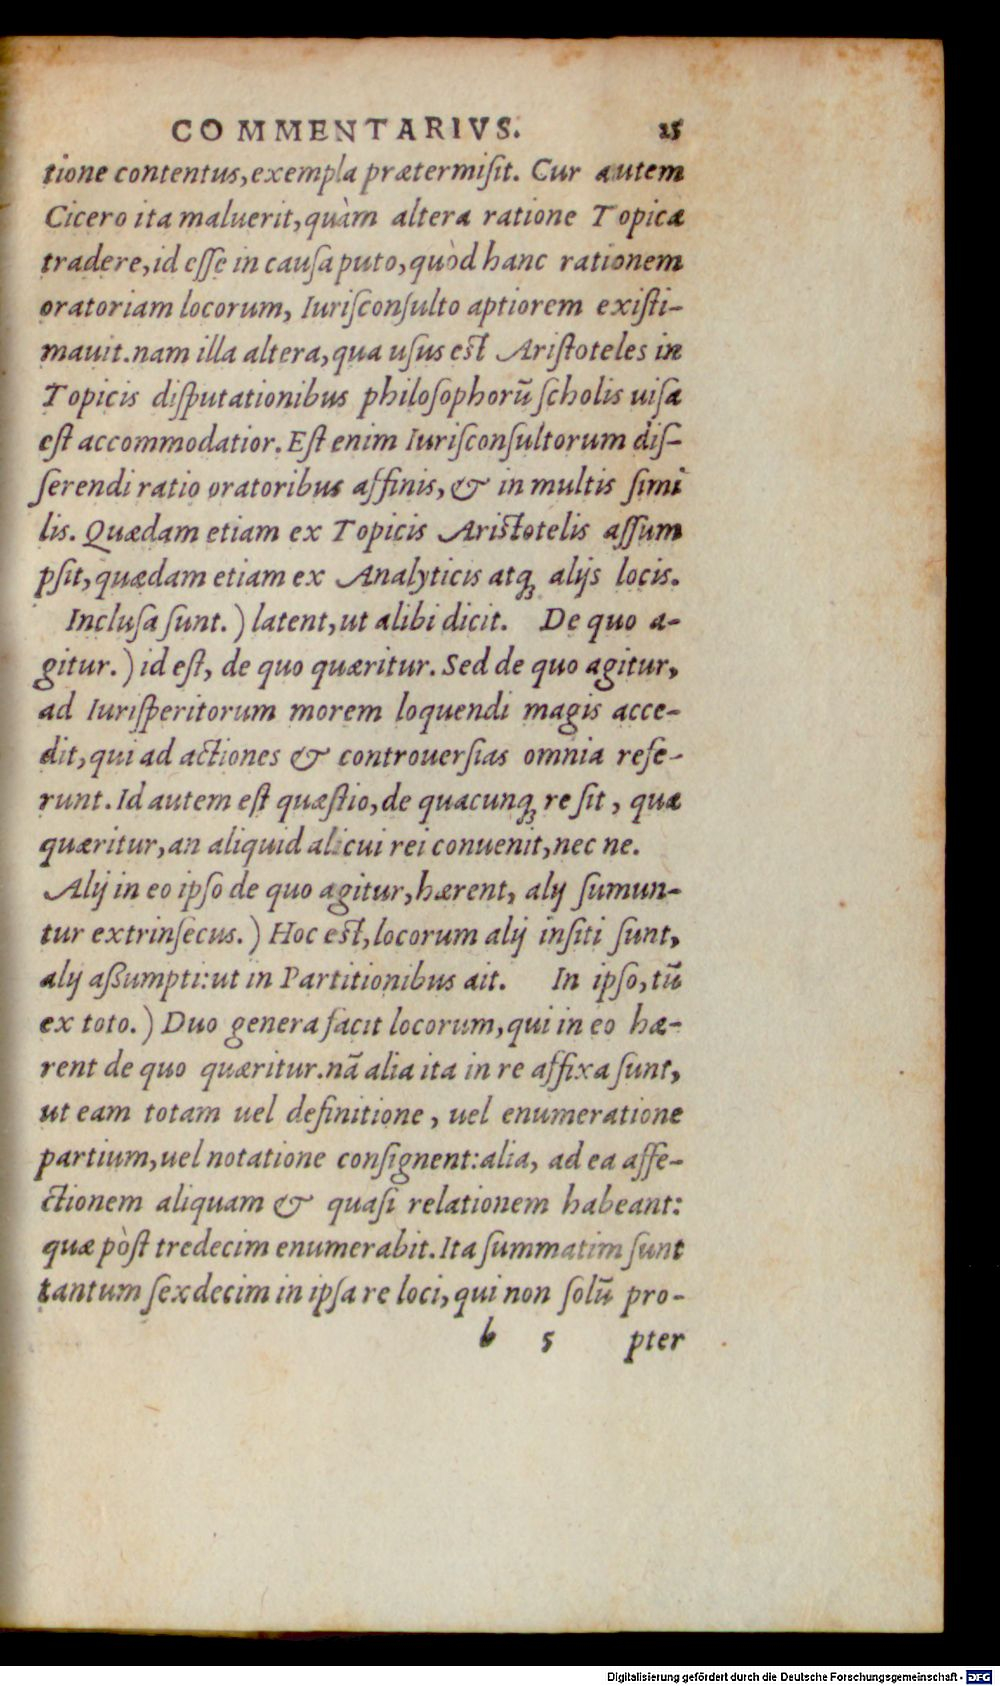 COMMENTARIVS. 25
tione contentus, exempla prætermiſit. Cur autem
Cicero ita maluerit, quàm altera ratione Topicæ
tradere, id eſſe in cauſa puto, quòd hanc rationem
oratoriam locorum, Iuriſconſulto aptiorem exiſti-
mauit. nam illa altera, qua uſus eſt Ariſtoteles in
Topicis diſputationibus philoſophorū ſcholis uiſa
eſt accommodatior. Eſt enim Iuriſconſultorum diſ-
ſerendi ratio oratoribus affinis, & in multis ſimi
lis. Quædam etiam ex Topicis Ariſtotelis aſſum
pſit, quædam etiam ex Analyticis atq; alijs locis.
Incluſa ſunt.) latent, ut alibi dicit. De quo a-
gitur.) id eſt, de quo quæritur. Sed de quo agitur,
ad Iuriſperitorum morem loquendi magis acce-
dit, qui ad actiones & controuerſias omnia refe-
runt. Id autem eſt quæſtio, de quacunq; re ſit, quæ
quæritur, an aliquid alicui rei conuenit, nec ne.
Alij in eo ipſo de quo agitur, hærent, alij ſumun-
tur extrinſecus.) Hoc eſt, locorum alij inſiti ſunt,
alij aßumpti: ut in Partitionibus ait. In ipſo, tū
ex toto.) Duo genera facit locorum, qui in eo hæ-
rent de quo quæritur. nā alia ita in re affixa ſunt,
ut eam totam uel definitione, uel enumeratione
partium, uel notatione conſignent: alia, ad ea affe-
ctionem aliquam & quaſi relationem habeant:
quæ pòſt tredecim enumerabit. Ita ſummatim ſunt
tantum ſexdecim in ipſa re loci, qui non ſolū pro-
b 5 pter
Digitalisierung gefördert durch die Deutsche Forschungsgemeinschaft - DFG